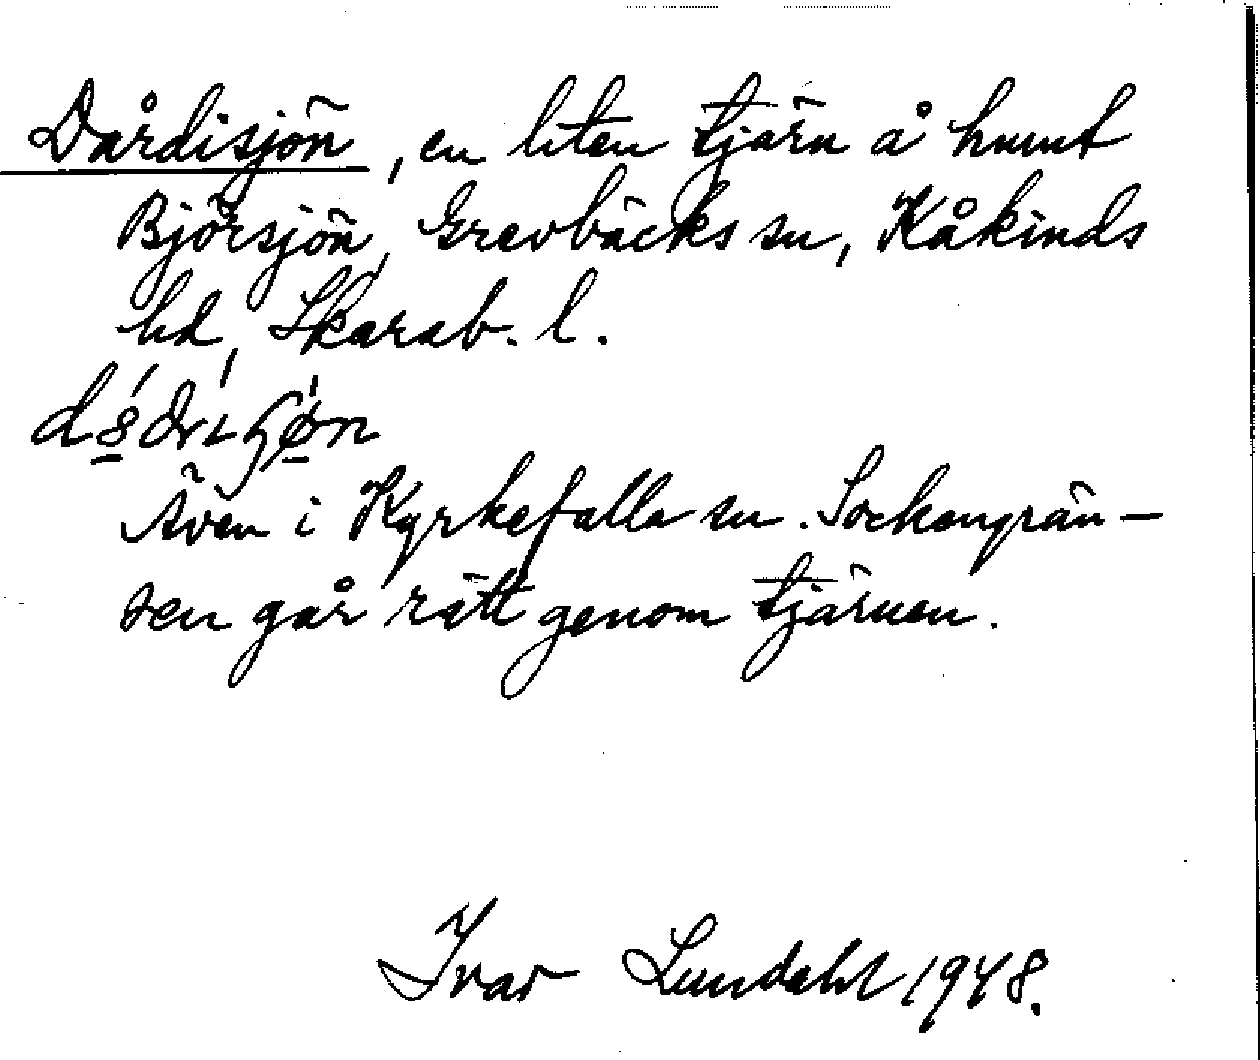 Dårdisjön, en liten tjärn å hmnt
Björsjön, Grevbäcks sn, Kåkinds
hd, Skarab. l.
Även i Kyrkefalla sn. Sockengrän-
sen går rätt genom tjärnen.
Ivar Lundahl 1948.